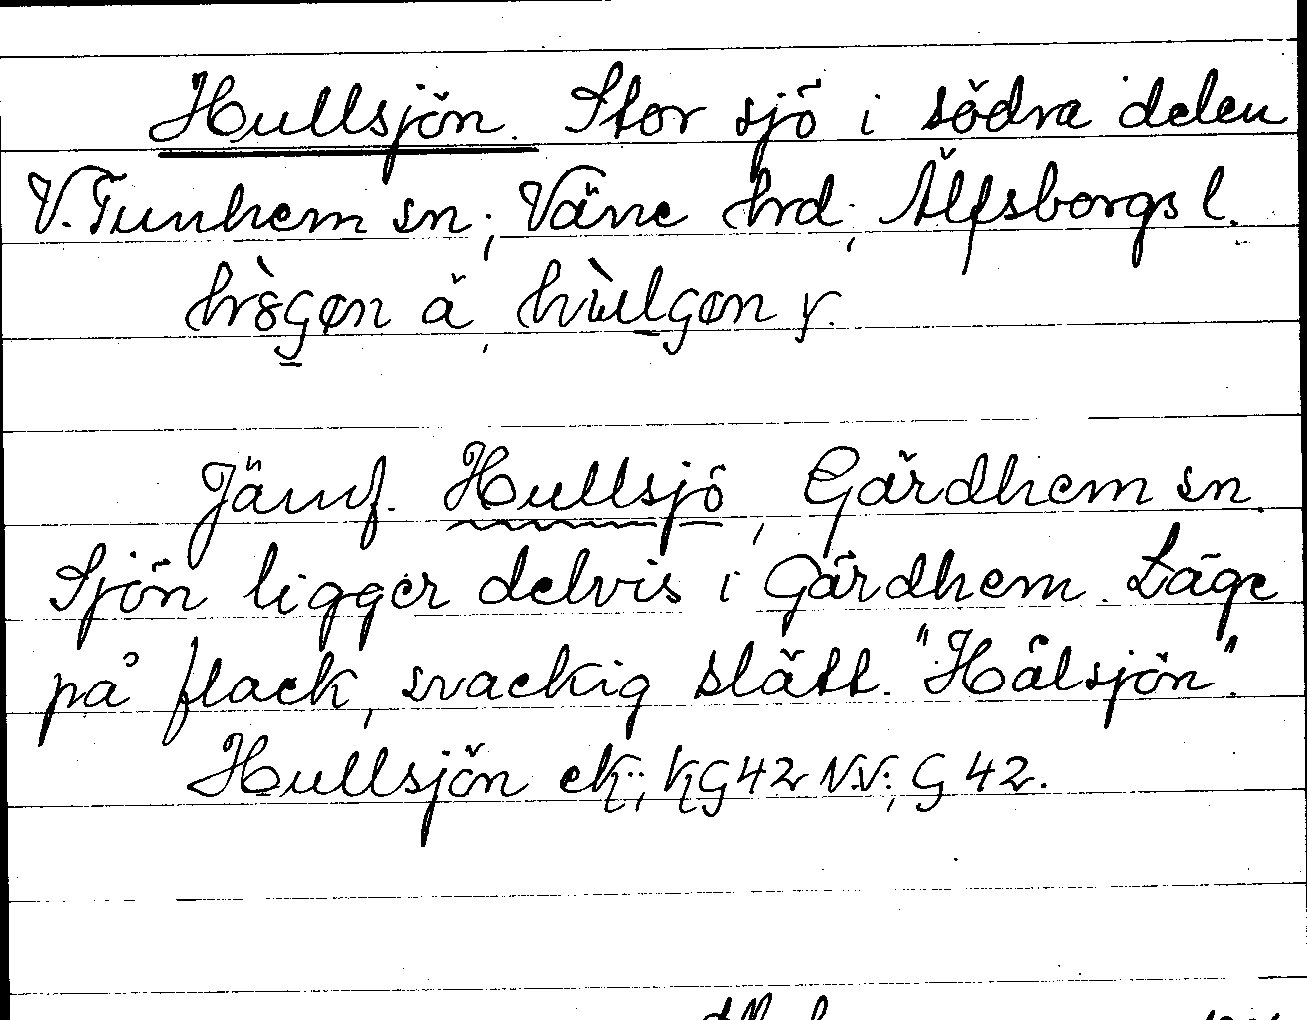 Hullsjön. Stor sjö i södra delen
V. Tunhem sn; Väne hrd; Älfsborgs l.
ä y.
Jämf. Hullsjö, Gärdhem sn.
Sjön ligger delvis i Gärdhem. Läge
på flack, svackig slätt. "Hålsjön".
Hullsjön ek; KG42 N.V.; G 42.